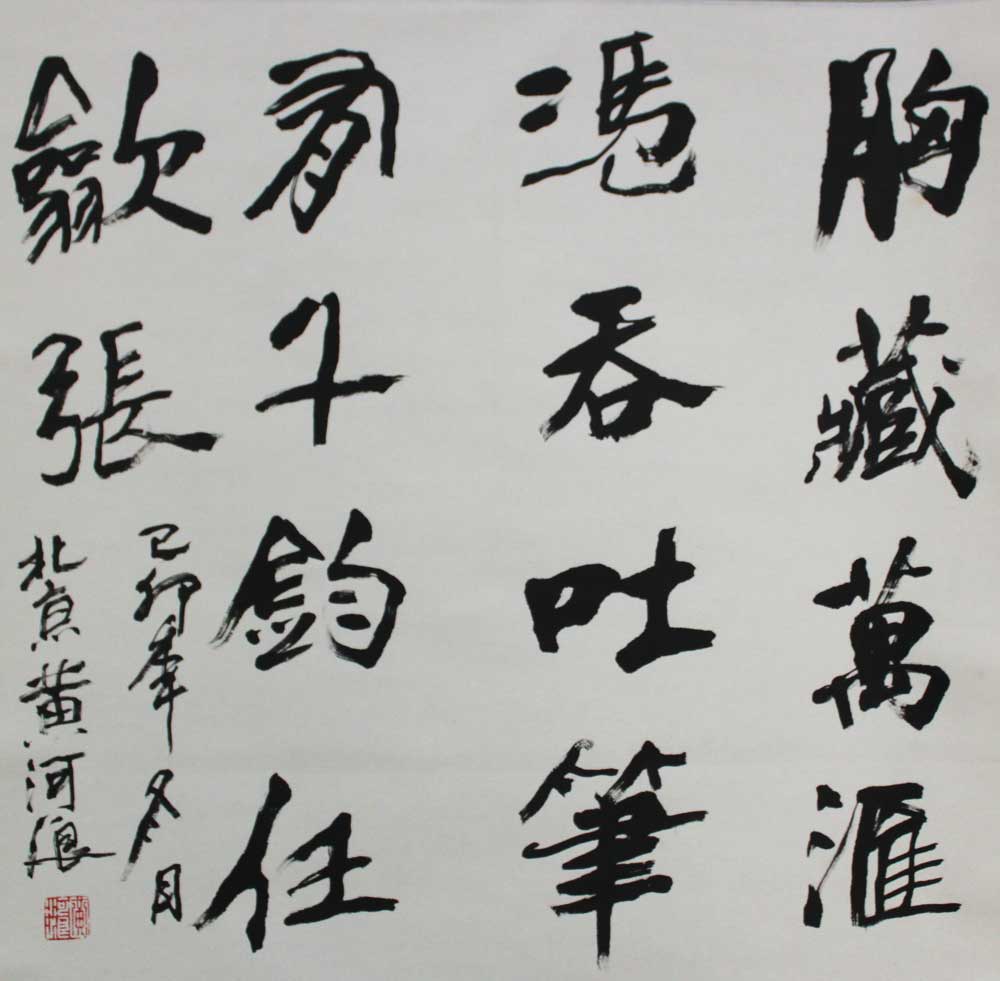 胸藏萬滙
馮吞吐筆
有千鈞任
歙張
己卯年冬月
北京黄河浪